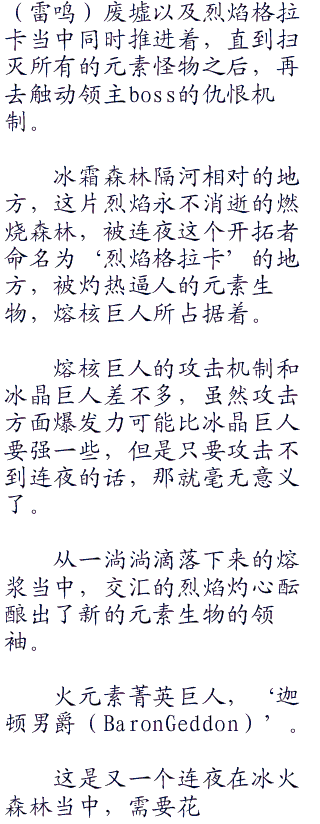 （雷鸣）废墟以及烈焰格拉
卡当中同时推进着，直到扫
灭所有的元素怪物之后，再
去触动领主boss的仇恨机
制。
冰霜森林隔河相对的地
方，这片烈焰永不消逝的燃
烧森林，被连夜这个开拓者
命名为‘烈焰格拉卡’的地
方，被灼热逼人的元素生
物，熔核巨人所占据着。
熔核巨人的攻击机制和
冰晶巨人差不多，虽然攻击
方面爆发力可能比冰晶巨人
要强一些，但是只要攻击不
到连夜的话，那就毫无意义
了。
从一淌淌滴落下来的熔
浆当中，交汇的烈焰灼心酝
酿出了新的元素生物的领
袖。
火元素菁英巨人，‘迦
顿男爵（BaronGeddon）’。
这是又一个连夜在冰火
森林当中，需要花